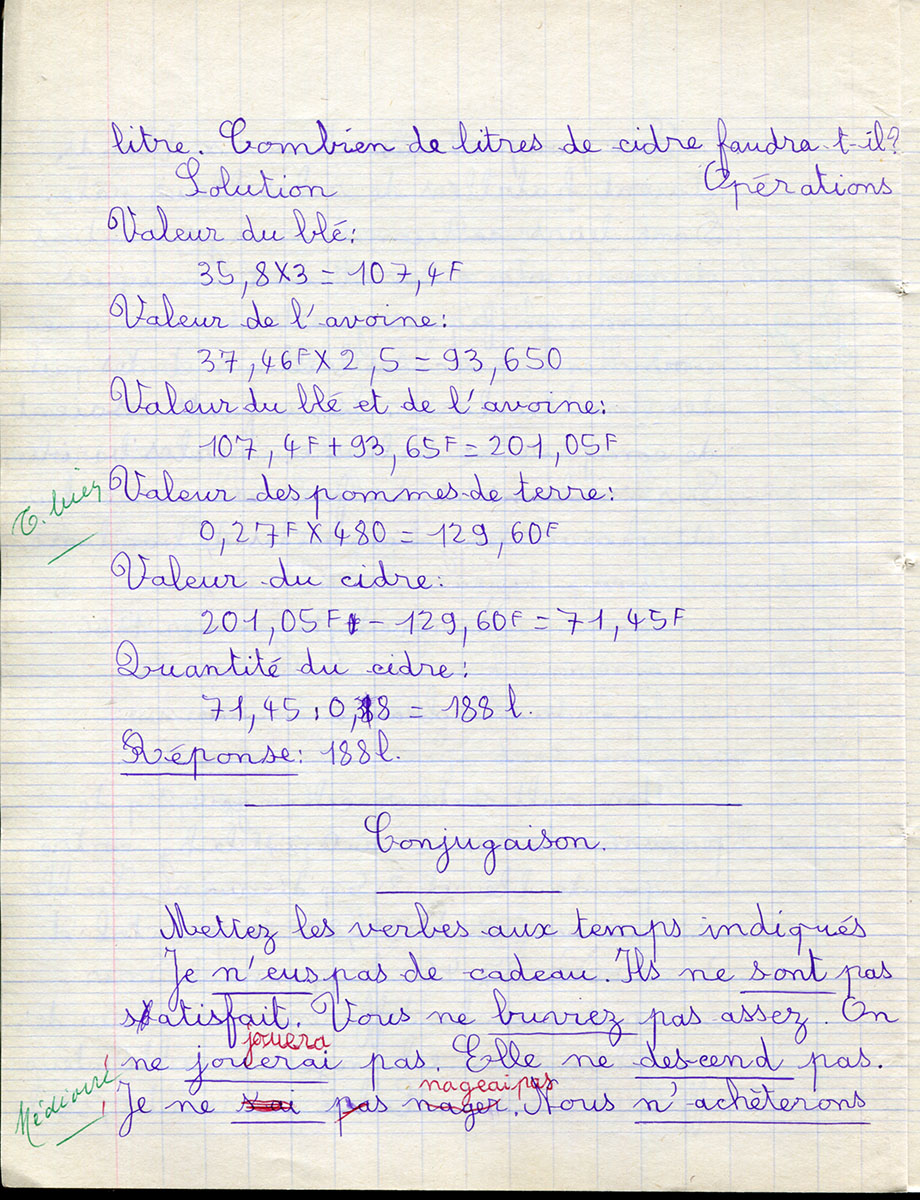 litre. Combien de litres de cidre faudra-t-il?
Solution Opérations
Valeur du blé:
35,8X3 = 107,4F
Valeur de l'avoine:
37,46F X 2,5 = 93,650
Valeur du blé et de l'avoine:
107,4F + 93,65F = 201,05F
T. bien
Valeur des pommes de terre:
0,27F X 480 = 129,60F
Valeur du cidre:
201,05F - 129,60F = 71,45F
Quantité du cidre:
71,45 : 0,38 = 188 l.
Réponse: 188l.
Conjugaison.
Mettez les verbes aux temps indiqués
Je n'eus pas de cadeau. Ils ne sont pas
satisfait. Vous ne buvrez pas assez. On
jouera
ne jouerai pas. Elle ne descend pas.
nageai pas
Médiocre! Je ne sai pas nager. Nous n'achèterons